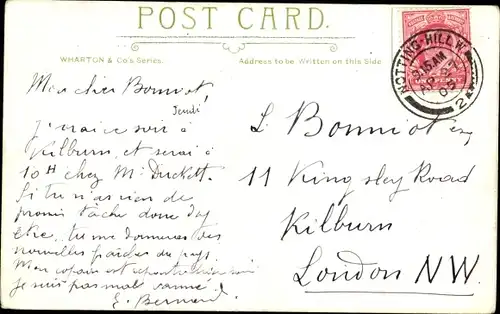 POST CARD.
WHARTON & Co's Series.
Address to be Written on this Side
NOTTING-HILL.W.
9.15 AM
AP 27
05
2
Mon cher Bonniot!
Jeudi
J'irai ce soir à
Kilburn, et serai à
10H chez Mr Duckett.
Si tu n'as rien de
promis tâche donc d'y
être, tu me donneras des
nouvelles fraîches du pays.
Mon copain est
je suis pas mal
E. Bernard
L. Bonniot Esq
11 Kingsley Road
Kilburn
London NW.